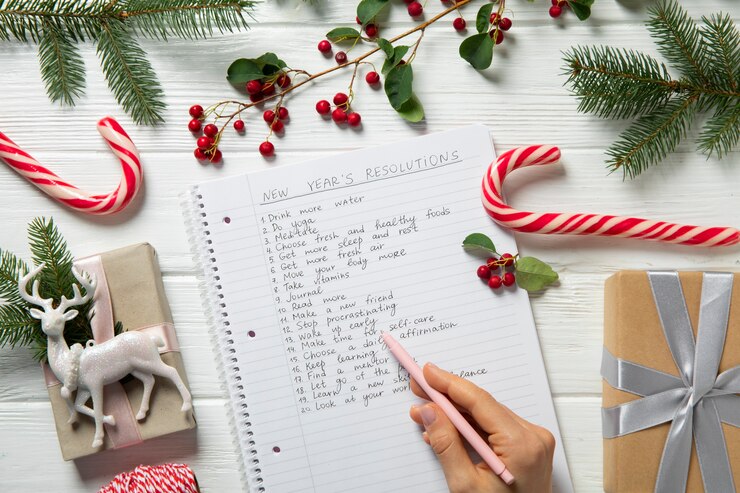 NEW YEAR'S RESOLUTIONS
1. Drink more water
2. Do yoga
3. Meditate
4. Choose fresh and healthy foods
5. Get more sleep and rest
6. Get more fresh air
7. Move your body more
8. Take vitamins
9. Journal
10. Read more
11. Make a new friend
12. Stop procrastinating
13. Wake up early
14. Make time for self-care
15. Choose a daily affirmation
16. Keep learning
17. Find a mentor
18. Let go of the
19. Learn a new
20. Look at your